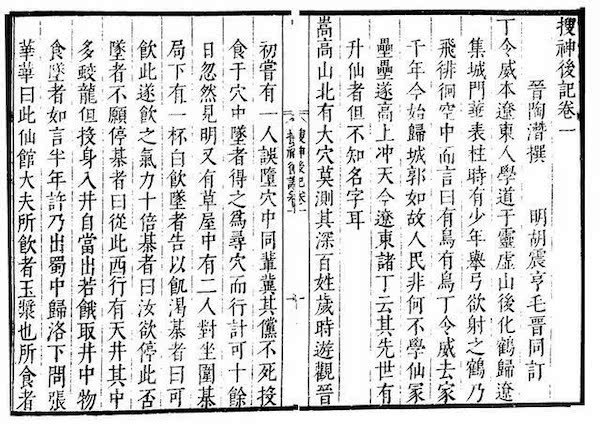 搜神後記卷一
晉陶潛撰　明胡震亨毛晉同訂
丁令威本遼東人學道于靈虛山後化鶴歸遼
集城門華表柱時有少年舉弓欲射之鶴乃
飛徘徊空中而言曰有鳥有鳥丁令威去家
千年今始歸城郭如故人民非何不學仙冢
壘壘遂高上冲天今遼東諸丁云其先世有
升仙者但不知名字耳
嵩高山北有大穴莫測其深百姓歲時遊觀晉
搜神後記卷一
初嘗有一人誤墮穴中同輩冀其儻不死投
食于穴中墜者得之爲尋穴而行計可十餘
日忽然見明又有草屋中有二人對坐圍碁
局下有一杯白飲墜者告以飢渴碁者曰可
飲此遂飲之氣力十倍碁者曰汝欲停此否
墜者不願停碁者曰從此西行有天井其中
多蛟龍但投身入井自當出若餓取井中物
食墜者如言半年許乃出蜀中歸洛下問張
華華曰此仙館大夫所飲者玉漿也所食者